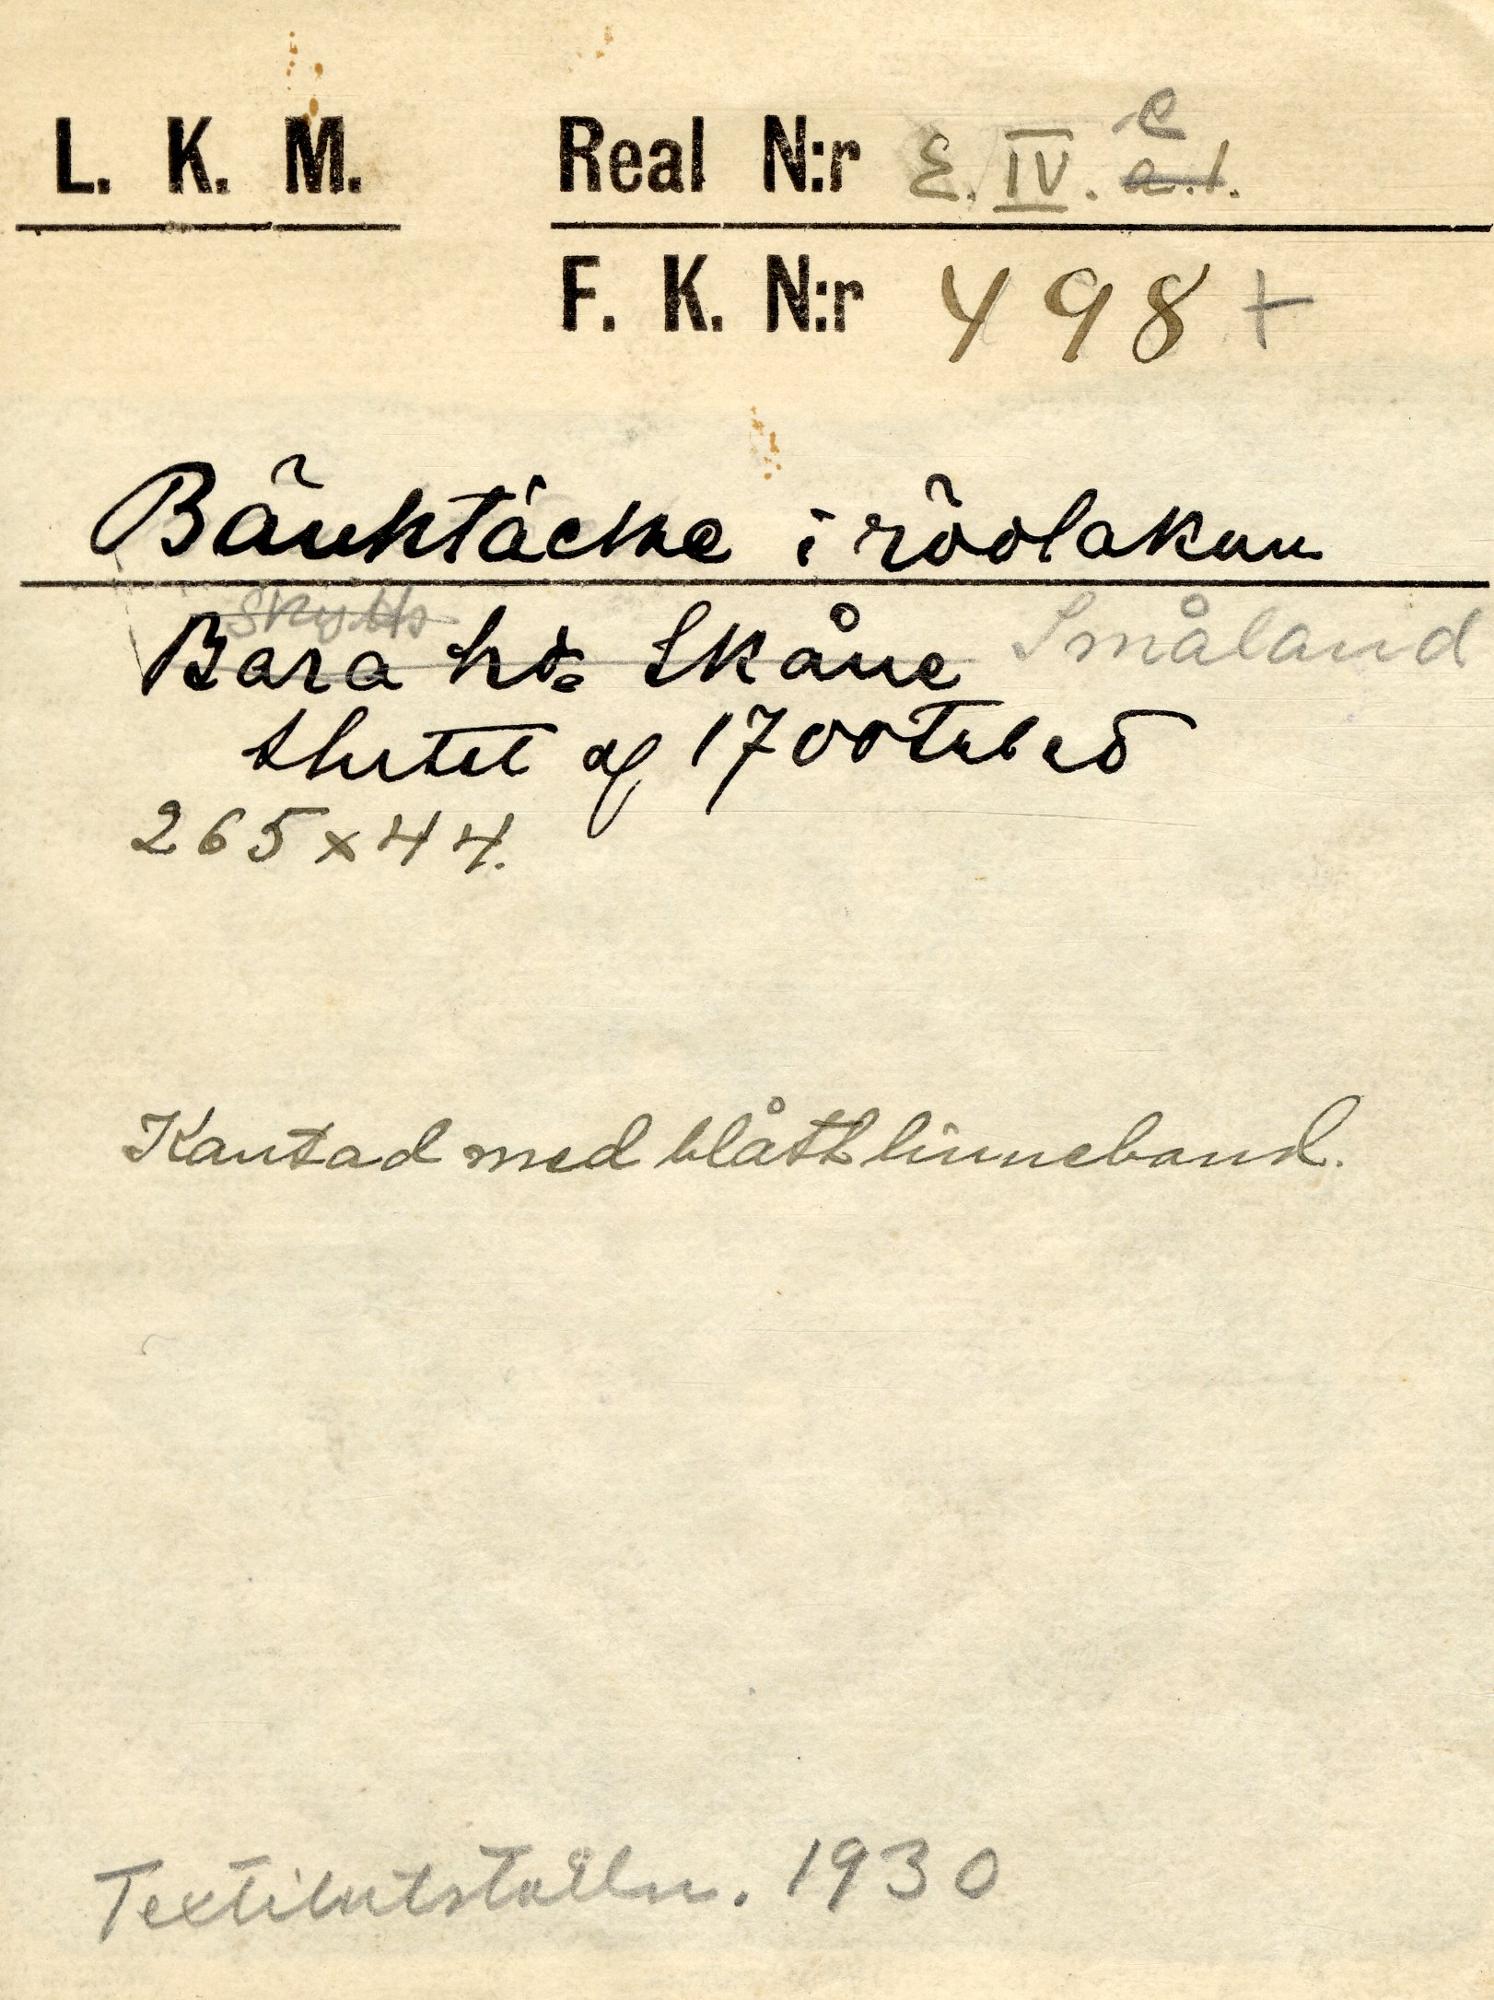 L. K. M. Real N:r E. IV. e a.1.
F. K. N:r 498 +
Bänktäcke i röolakan
Skytts
Bara hd. Skåne Småland
slutet af 1700talet
265 x 44.
Kantad med blått linneband.
Textilutställn. 1930